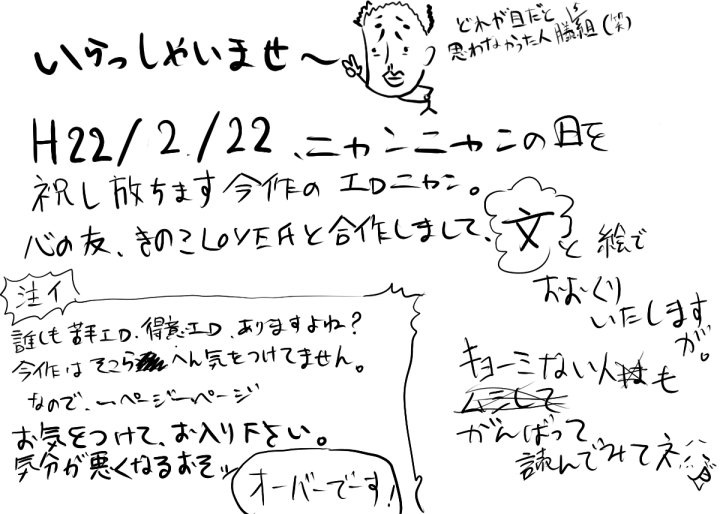 いらっしゃいませ〜
どれが目だと
思わなかった人は勝組(笑)
H22/2/22、ニャンニャンの日を
祝し放ちます今作のエロニャン。
心の友、きのこLOVEAと合作しまして、文と絵で
おおくり
いたします
が。
注イ
誰しも苦手エロ、得意エロ、ありますよね?
今作はそこらへん気をつけてません。
なので、一ページ一ページ
お気をつけて、お入り下さい。
気分が悪くなるおそッ
オーバーでーす!
キョーミない人も
がんばって
読んでみてネ